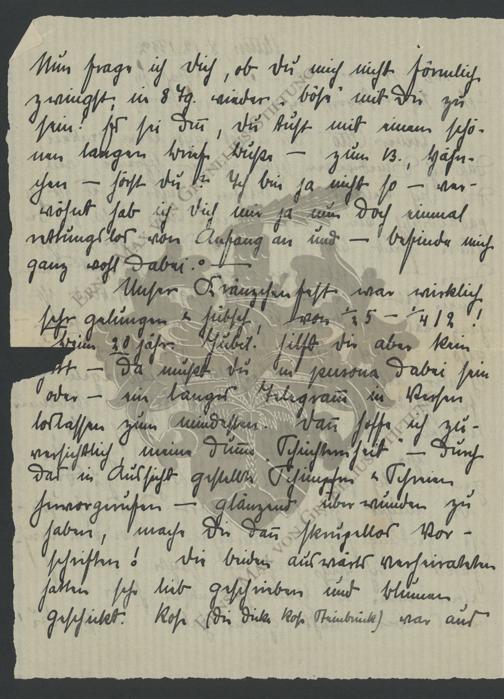 Nun frage ich Dich, ob Du mich nicht förmlich
zwingst, in 8 Tg. wieder „böse" mit Dir zu
sein! Es sei denn, Du tust mit einem schö-
nen langen Brief Buße – zum 13., Hähn-
chen – hörst Du? Ich bin ja nicht so – ver-
wöhnt hab ich Dich nun ja nun doch einmal
rettungslos von Anfang an und – befinde mich
ganz wohl dabei. –
Unser Kränzchenfest war wirklich
sehr gelungen & hübsch, von ½5 – ½12!
Beim 20 jähr. Jubil. hilft Dir aber kein
– da mußt Du in persona dabei sein
oder – ein langes Telegramm in Versen
loslassen zum mindesten. Dann hoffe ich zu-
versichtlich meine dumme Schüchternheit – durch
das in Aussicht gestellte Schimpfen & Schreien
hervorgerufen – glänzend überwunden zu
haben, mache Dir dann skrupellos Vor-
schriften! Die beiden auswärts verheirateten
hatten sehr lieb geschrieben und Blumen
geschickt. Rose (die dicke Rose Steinbrück) war aus